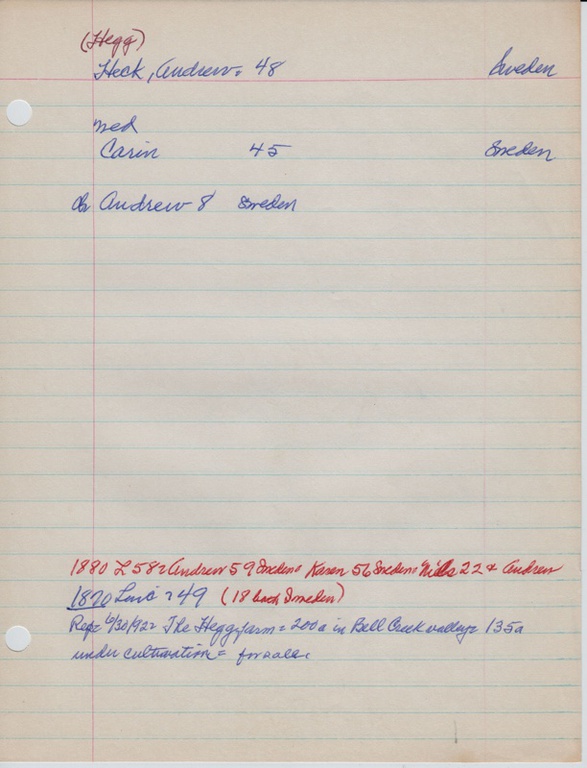 (Hegg)
Heck, Andrew = 48 Sweden
med
Carin 45 Sweden
ch Andrew 8 Sweden
1880 L 58 = Andrew 59 Sweden = Karen 56 Sweden = Nills 22 & Andrew
1870 Line 49 (18 both Sweden)
Rep = 6/30/922 The Hegg farm = 200a in Bell Creek valley = 135a
under cultivation = for sale.